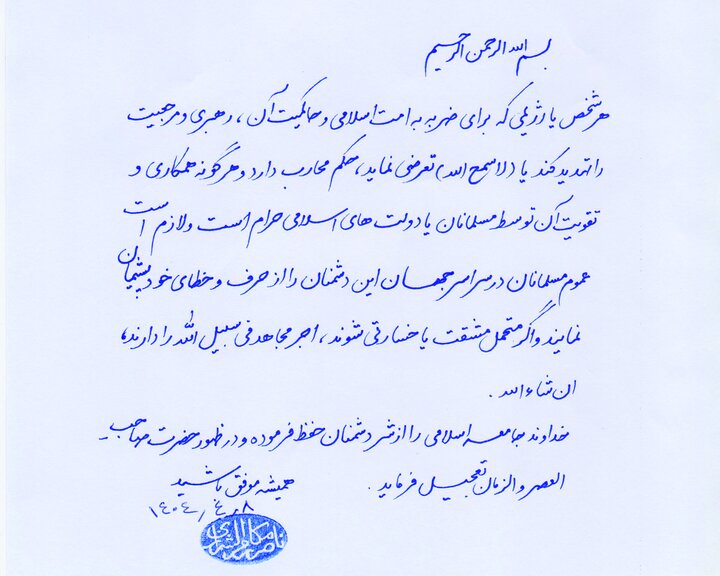 بسم الله الرحمن الرحیم
هر شخص یا رژیمی که برای ضربه به امت اسلامی و حاکمیت آن، رهبری و مرجعیت
را تهدید کند یا (لاسمح الله) تعرضی نماید، حکم محارب دارد و هرگونه همکاری و
تقویت آن توسط مسلمانان یا دولت های اسلامی حرام است و لازم است
عموم مسلمانان در سراسر جهان این دشمنان را از حرف و خطای خود پشیمان
نمایند و اگر متحمل مشقت یا خسارتی شوند، اجر مجاهد فی سبیل الله را دارند،
ان شاء الله.
خداوند جامعه اسلامی را از شر دشمنان حفظ فرموده و در ظهور حضرت صاحب
العصر والزمان تعجیل فرماید.
همیشه موفق باشید
۱۴۰۴/۴/۸
ناصر مکارم شیرازی